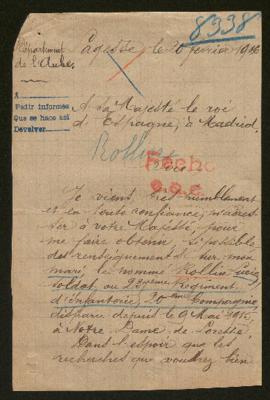 8338
Département
de l'Aube
Lagesse, le 20 février 1916
Pedir informes
Que se hace así
Devolver
A Sa Majesté le roi
d'Espagne, à Madrid,
Rollin
Fecho
Sire
Je vient très humblement
et en toute confiance, m'adres
ser à votre Majesté, pour
me faire obtenir si possible
des renseignements sur mon
mari, le nommé Rollin Lucien
soldat, au Régiment
d'Infanterie, 20eme Compagnie,
disparu depuis le 9 Mai 1915,
à Notre Dame de Lorette.
Dans l'espoir que les
recherches que voudrez bien